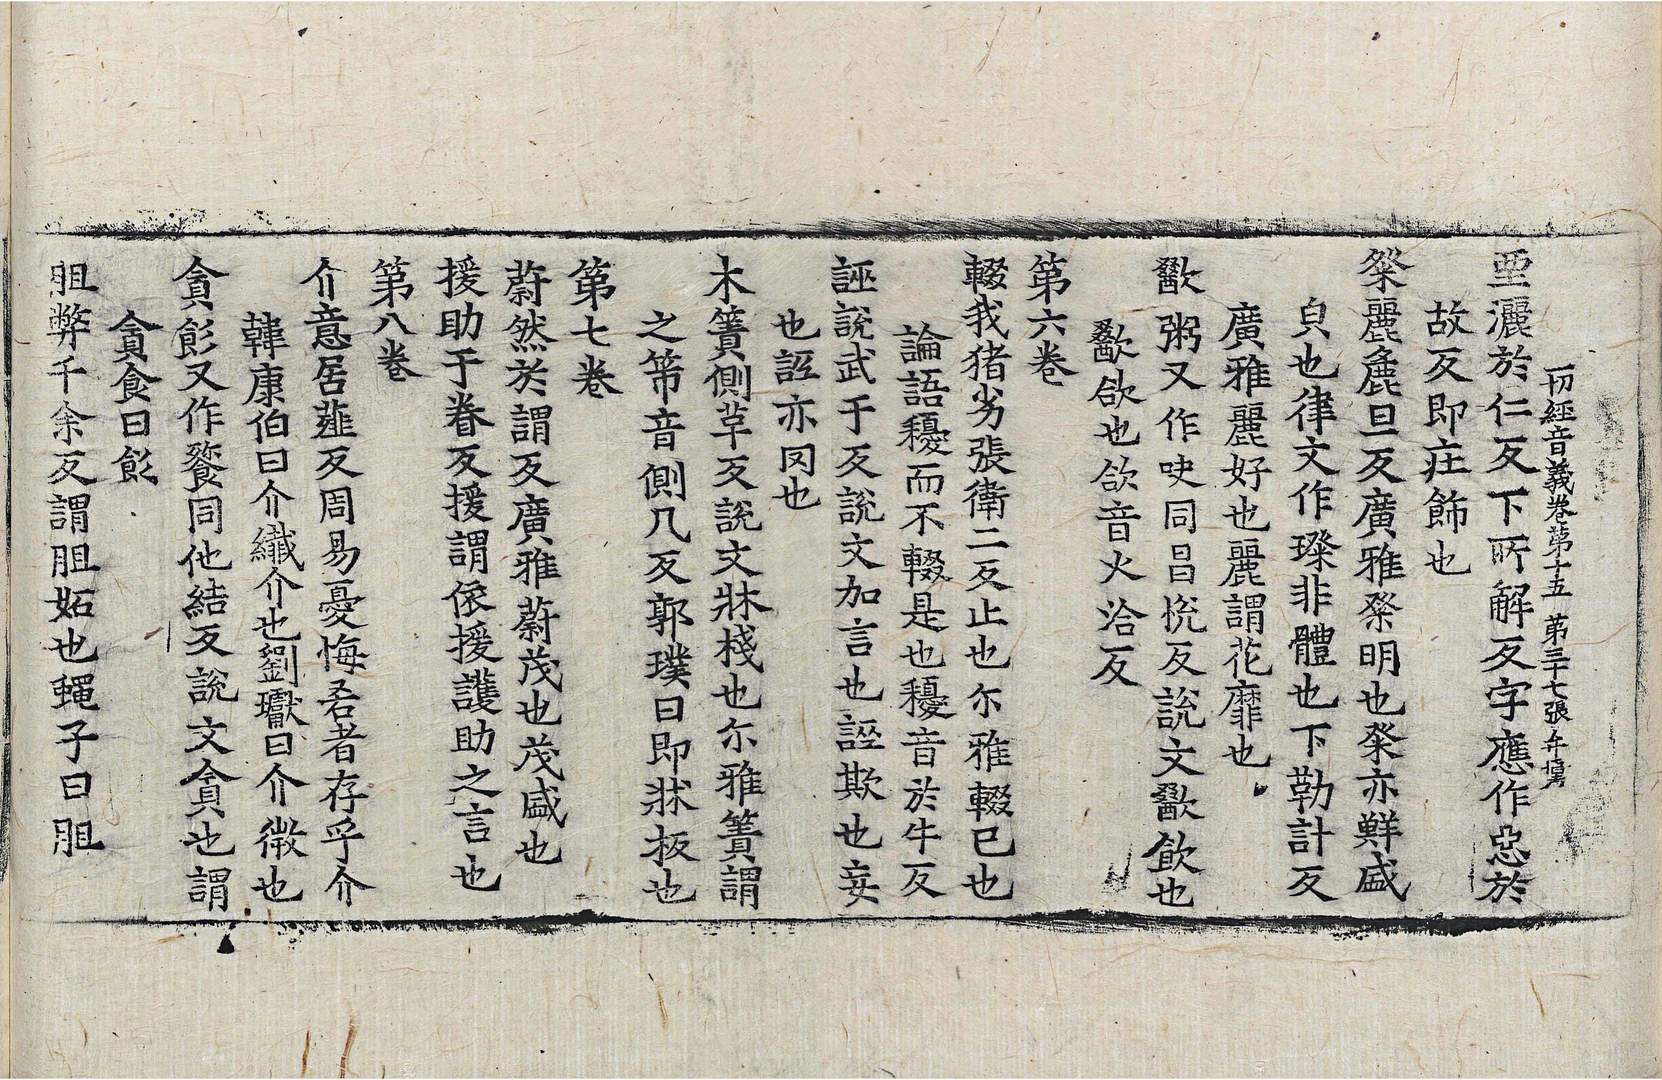 一切經音義卷第十五　第三十七張
堊灑於仁反下所解反字應作惡於
故反即庄飾也
粲麗麁旦反廣雅粲明也粲亦鮮盛
皃也律文作璨非體也下勒計反
廣雅麗好也麗謂花靡也
歠粥又作吷同昌悅反說文歠飲也
歠欱也欱音火洽反
第六卷
輟我猪劣張衛二反止也尒雅輟已也
論語耰而不輟是也耰音於牛反
誣說武于反說文加言也誣欺也妄
也誣亦罔也
木簀側革反說文牀棧也尒雅簀謂
之笫音側几反郭璞曰即牀板也
第七卷
蔚然於謂反廣雅蔚茂也茂盛也
援助于眷反援謂依援護助之言也
第八卷
介意居薤反周易憂悔吝者存乎介
韓康伯曰介纖介也劉瓛曰介微也
貪飻又作餮同他結反說文貪也謂
貪食曰飻
胆弊千余反謂胆妬也蠅子曰胆